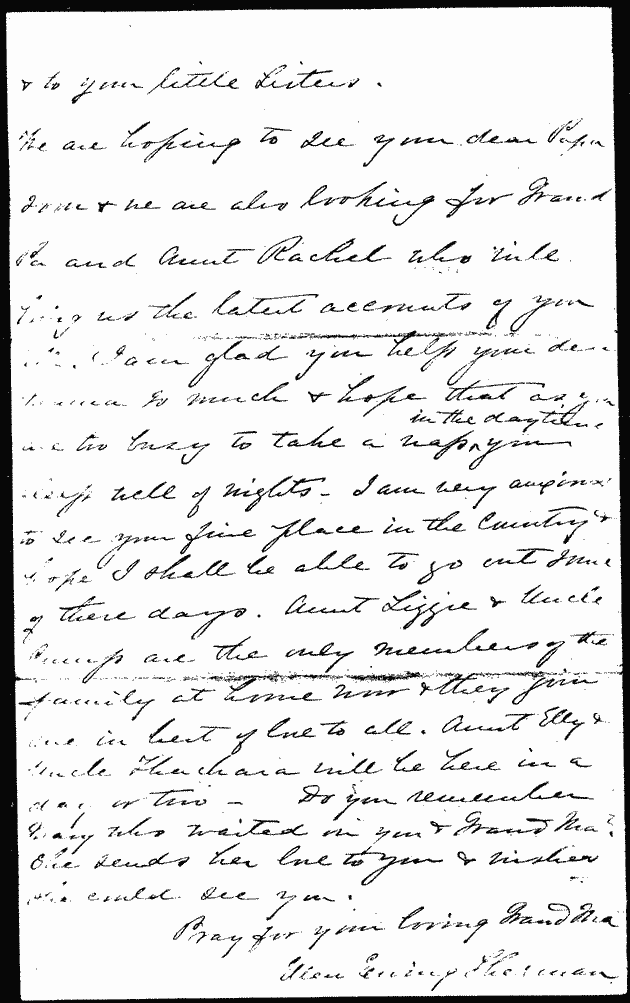 & to your little Sisters.
We are hoping to see your dear Papa
soon & we are also looking for Grand
Pa and Aunt Rachel who will
bring us the latest accounts of you
all. I am glad you help your dear
Mama so much & hope that as you
in the daytime
are too busy to take a nap ^ you
sleep well of nights - I am very anxious
to see your fine place in the Country &
hope I shall be able to go out some
of these days. Aunt Lizzie & Uncle
Cump are the only members of the
family at home now & they join
me in best of love to all. Aunt Elly &
Uncle Thackara will be here in a
day or two - Do you remember
Mary who waited on you & Grand Ma?
She sends her love to you & wishes
she could see you.
Pray for your loving Grand Ma
Ellen Ewing Sherman